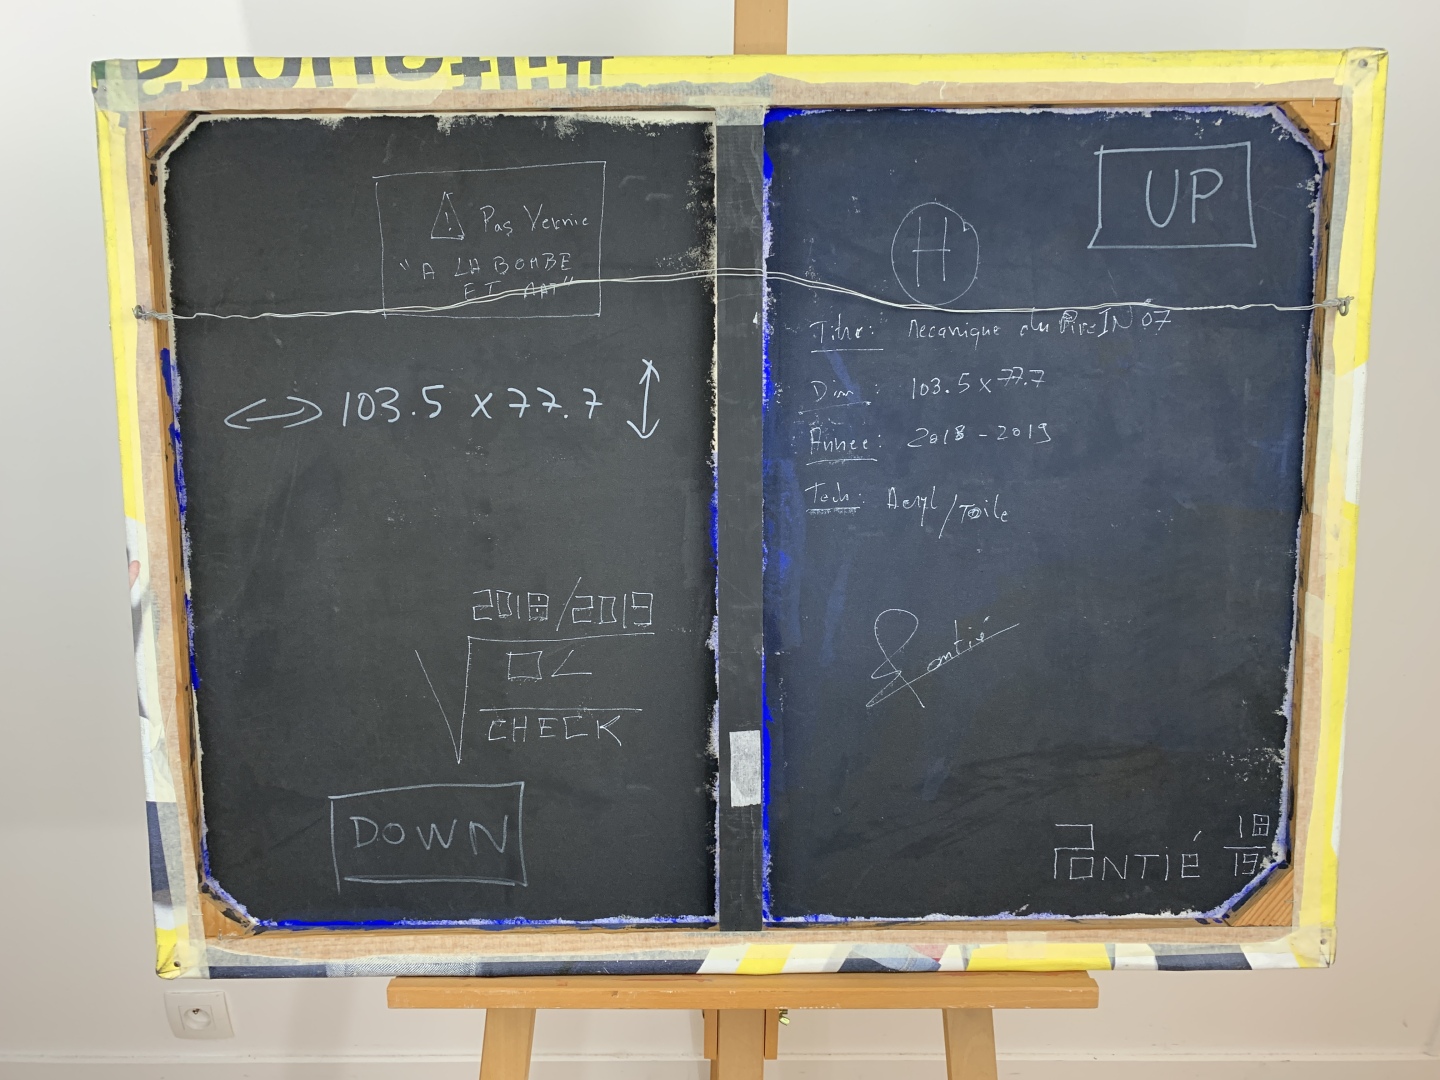 ⚠ Pas Vernie
"A LA BOMBE
ET MAT"
⟷ 103.5 x 77.7 ↕
2018/2019
CHECK
DOWN
UP
H
Titre: Mecanique du IN 07
Dim: 103.5 x 77.7
Annee: 2018 - 2019
Tech: Acryl/Toile
Pontié
PONTIÉ 18
19